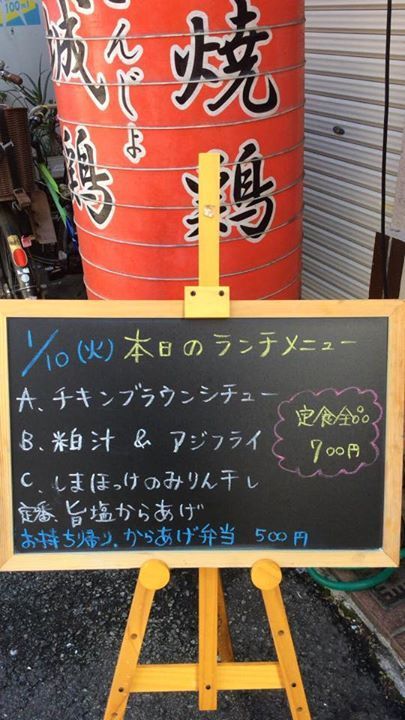 焼鶏
んじょ
城鶏
1/10(火) 本日のランチメニュー
A、チキンブラウンシチュー
B、粕汁 & アジフライ
C、しまほっけのみりん干し
定番、旨塩からあげ
お持ち帰り、からあげ弁当 500円
定食全品
700円